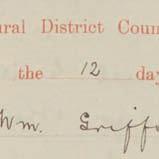 ural District Coun
the 12 day
Wm. Griff